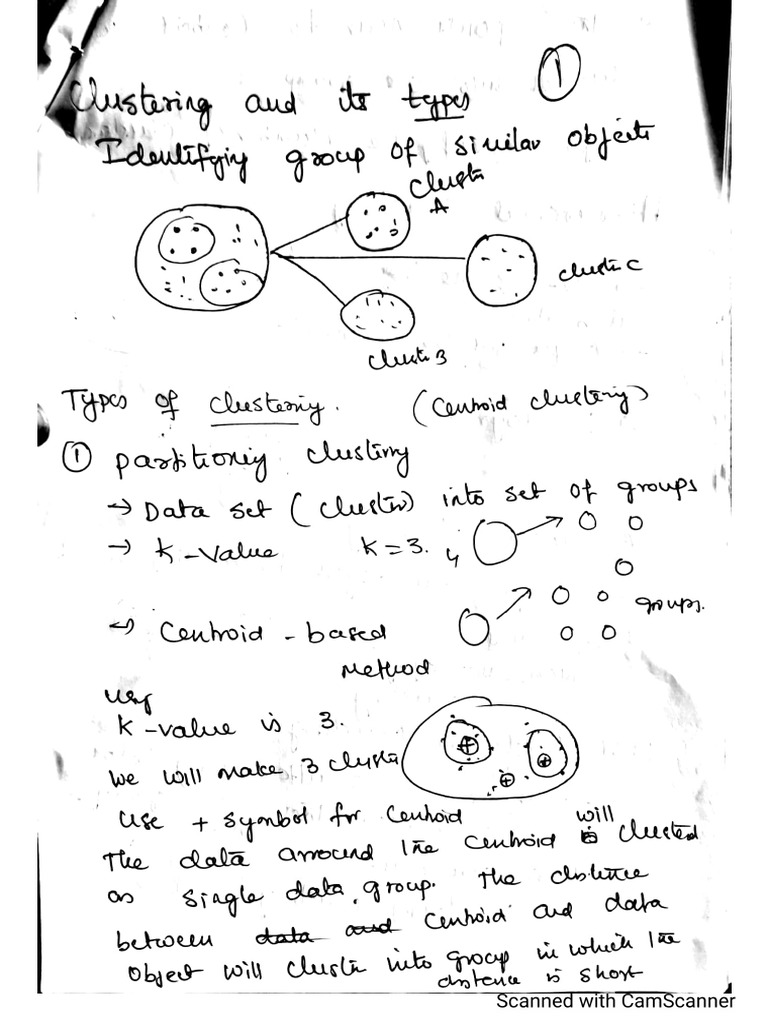 1
Clustering and its types
Identifying group of similar objects
Cluster
A
Cluster C
Cluster B
Types of clustering. (Centroid clustering)
1 partitioning clustering
→ Data set (cluster) into set of groups
→ K-value K=3.
groups.
→ Centroid-based
Method
K-value is 3.
We will make 3 cluster
Use + symbol for centroid
will
The data arround the centroid is clusted
as single data group. The distence
between data and centroid and data
Object will cluster into group in which the
distance is short
Scanned with CamScanner